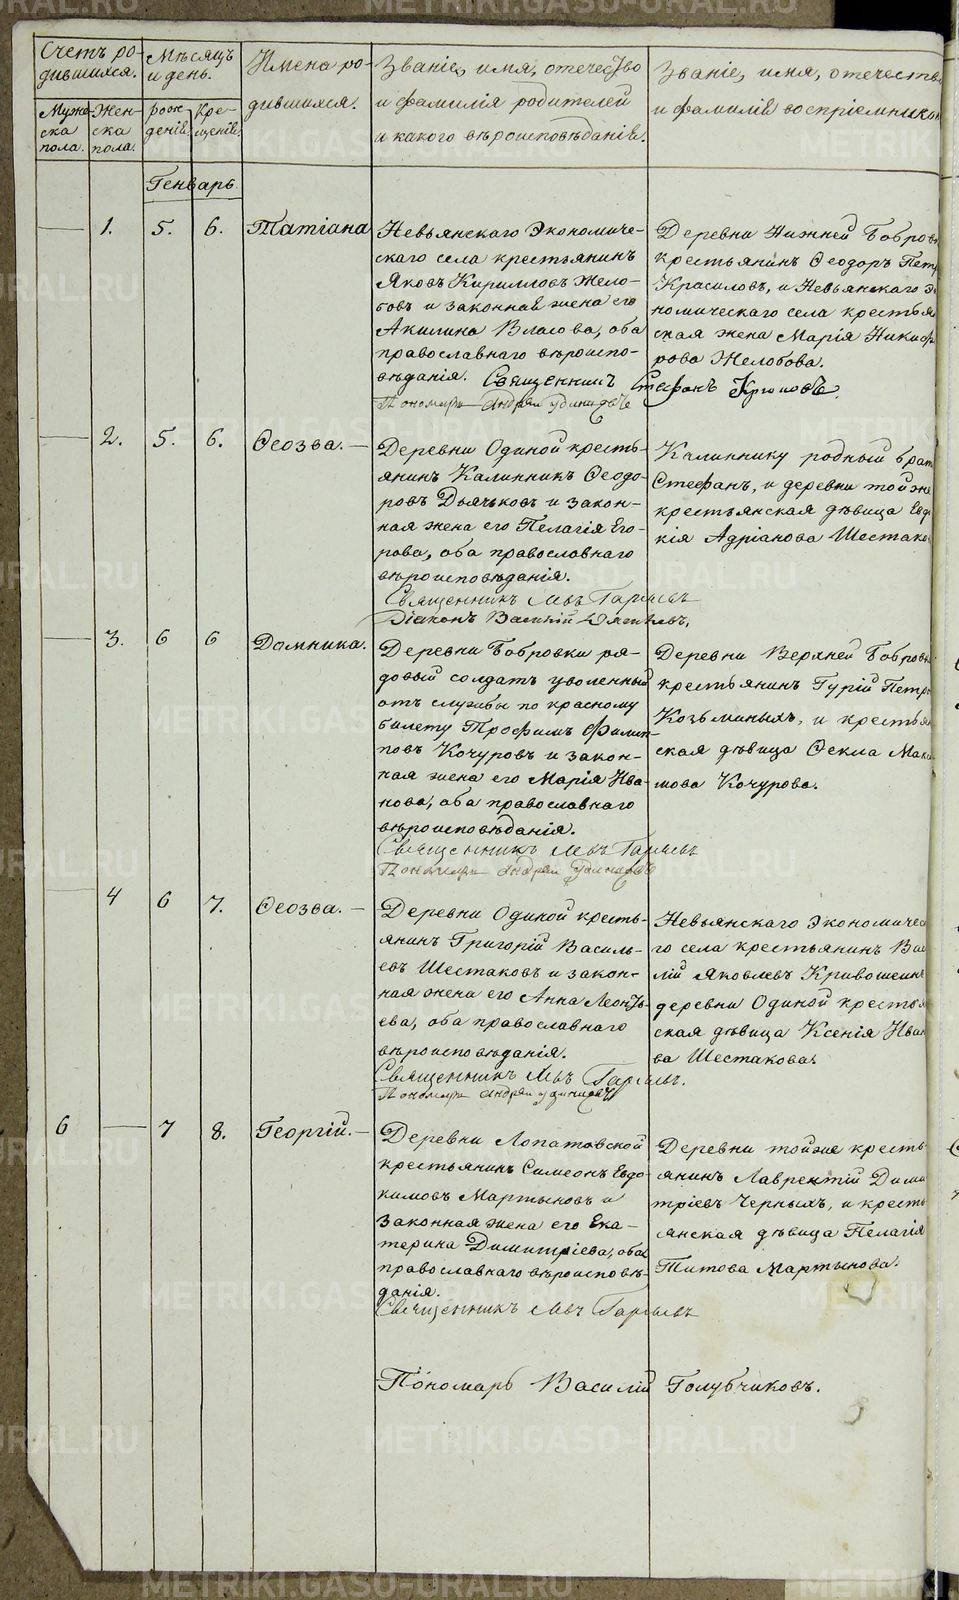 Счетъ ро-
дившихся.
Мѣсяцъ
и день.
Имена ро-
дившихся.
Званіе, имя, отечество
и фамилія родителей
и какого вѣроисповѣданія.
Званіе, имя, отечество
и фамилія воспріемников
Муже-
ска
пола.
Жен-
ска
пола.
рож-
денія.
Кре-
щенія.
Генварь.
1. 5. 6. Татіана
Невьянскаго Экономиче-
скаго села крестьянинъ
Яковъ Кирилловъ Жело-
бовъ и законная жена его
Акилина Власова, оба
православнаго вѣроиспо-
вѣданія. Священникъ Стефанъ
Пономарь Андрей
Деревни Нижней Бобровк
крестьянинъ Ѳеодоръ Петр
Красиловъ, и Невьянскаго Э
номическаго села крестья
ская жена Марія Никиф
рова Желобова.
2. 5. 6. Ѳеозва.
Деревни Одиной кресть-
янинъ Калинникъ Ѳеодо-
ровъ Дьячковъ и закон-
ная жена его Пелагія Его-
рова, оба православнаго
вѣроисповѣданія.
Священникъ Левъ Гаряевъ
Діаконъ Василій
Калиннику родный брат
Стефанъ, и деревни той же
крестьянская дѣвица Евд
кія Адріанова Шестако
3. 6 6 Домника.
Деревни Бобровки ря-
довый солдатъ уволенный
отъ службы по красному
билету Трофимъ Филип-
повъ Кочуровъ и закон-
ная жена его Марія Ива-
нова, оба православнаго
вѣроисповѣданія.
Священникъ Левъ Гаряевъ
Пономарь Андрей
Деревни Верхней Бобровк
крестьянинъ Гурій Петр
Козьминыхъ, и крестья
ская дѣвица Ѳекла Макси
мова Кочурова.
4 6 7. Ѳеозва.
Деревни Одиной кресть-
янинъ Григорій Василь-
евъ Шестаковъ и закон-
ная жена его Анна Леонть-
ева, оба православнаго
вѣроисповѣданія.
Священникъ Левъ Гаряевъ.
Пономарь Андрей
Невьянскаго Экономичес
го села крестьянинъ Вас
лій Яковлевъ Кривошеинъ
деревни Одиной крестья
ская дѣвица Ксенія Иван
ва Шестакова.
6 7 8. Георгій.
Деревни Лопатовской
крестьянинъ Симеонъ Евдо-
кимовъ Мартыновъ и
законная жена его Ека-
терина Димитріева, оба
православнаго вѣроисповѣ-
данія.
Священникъ Левъ Гаряевъ
Деревни тойже кресть
янинъ Лаврентій Дими
тріевъ Черныхъ, и кресть
янская дѣвица Пелагія
Титова Мартынова.
Пономарь Василій Голубчиковъ.
METRIKI.GASO-URAL.RU